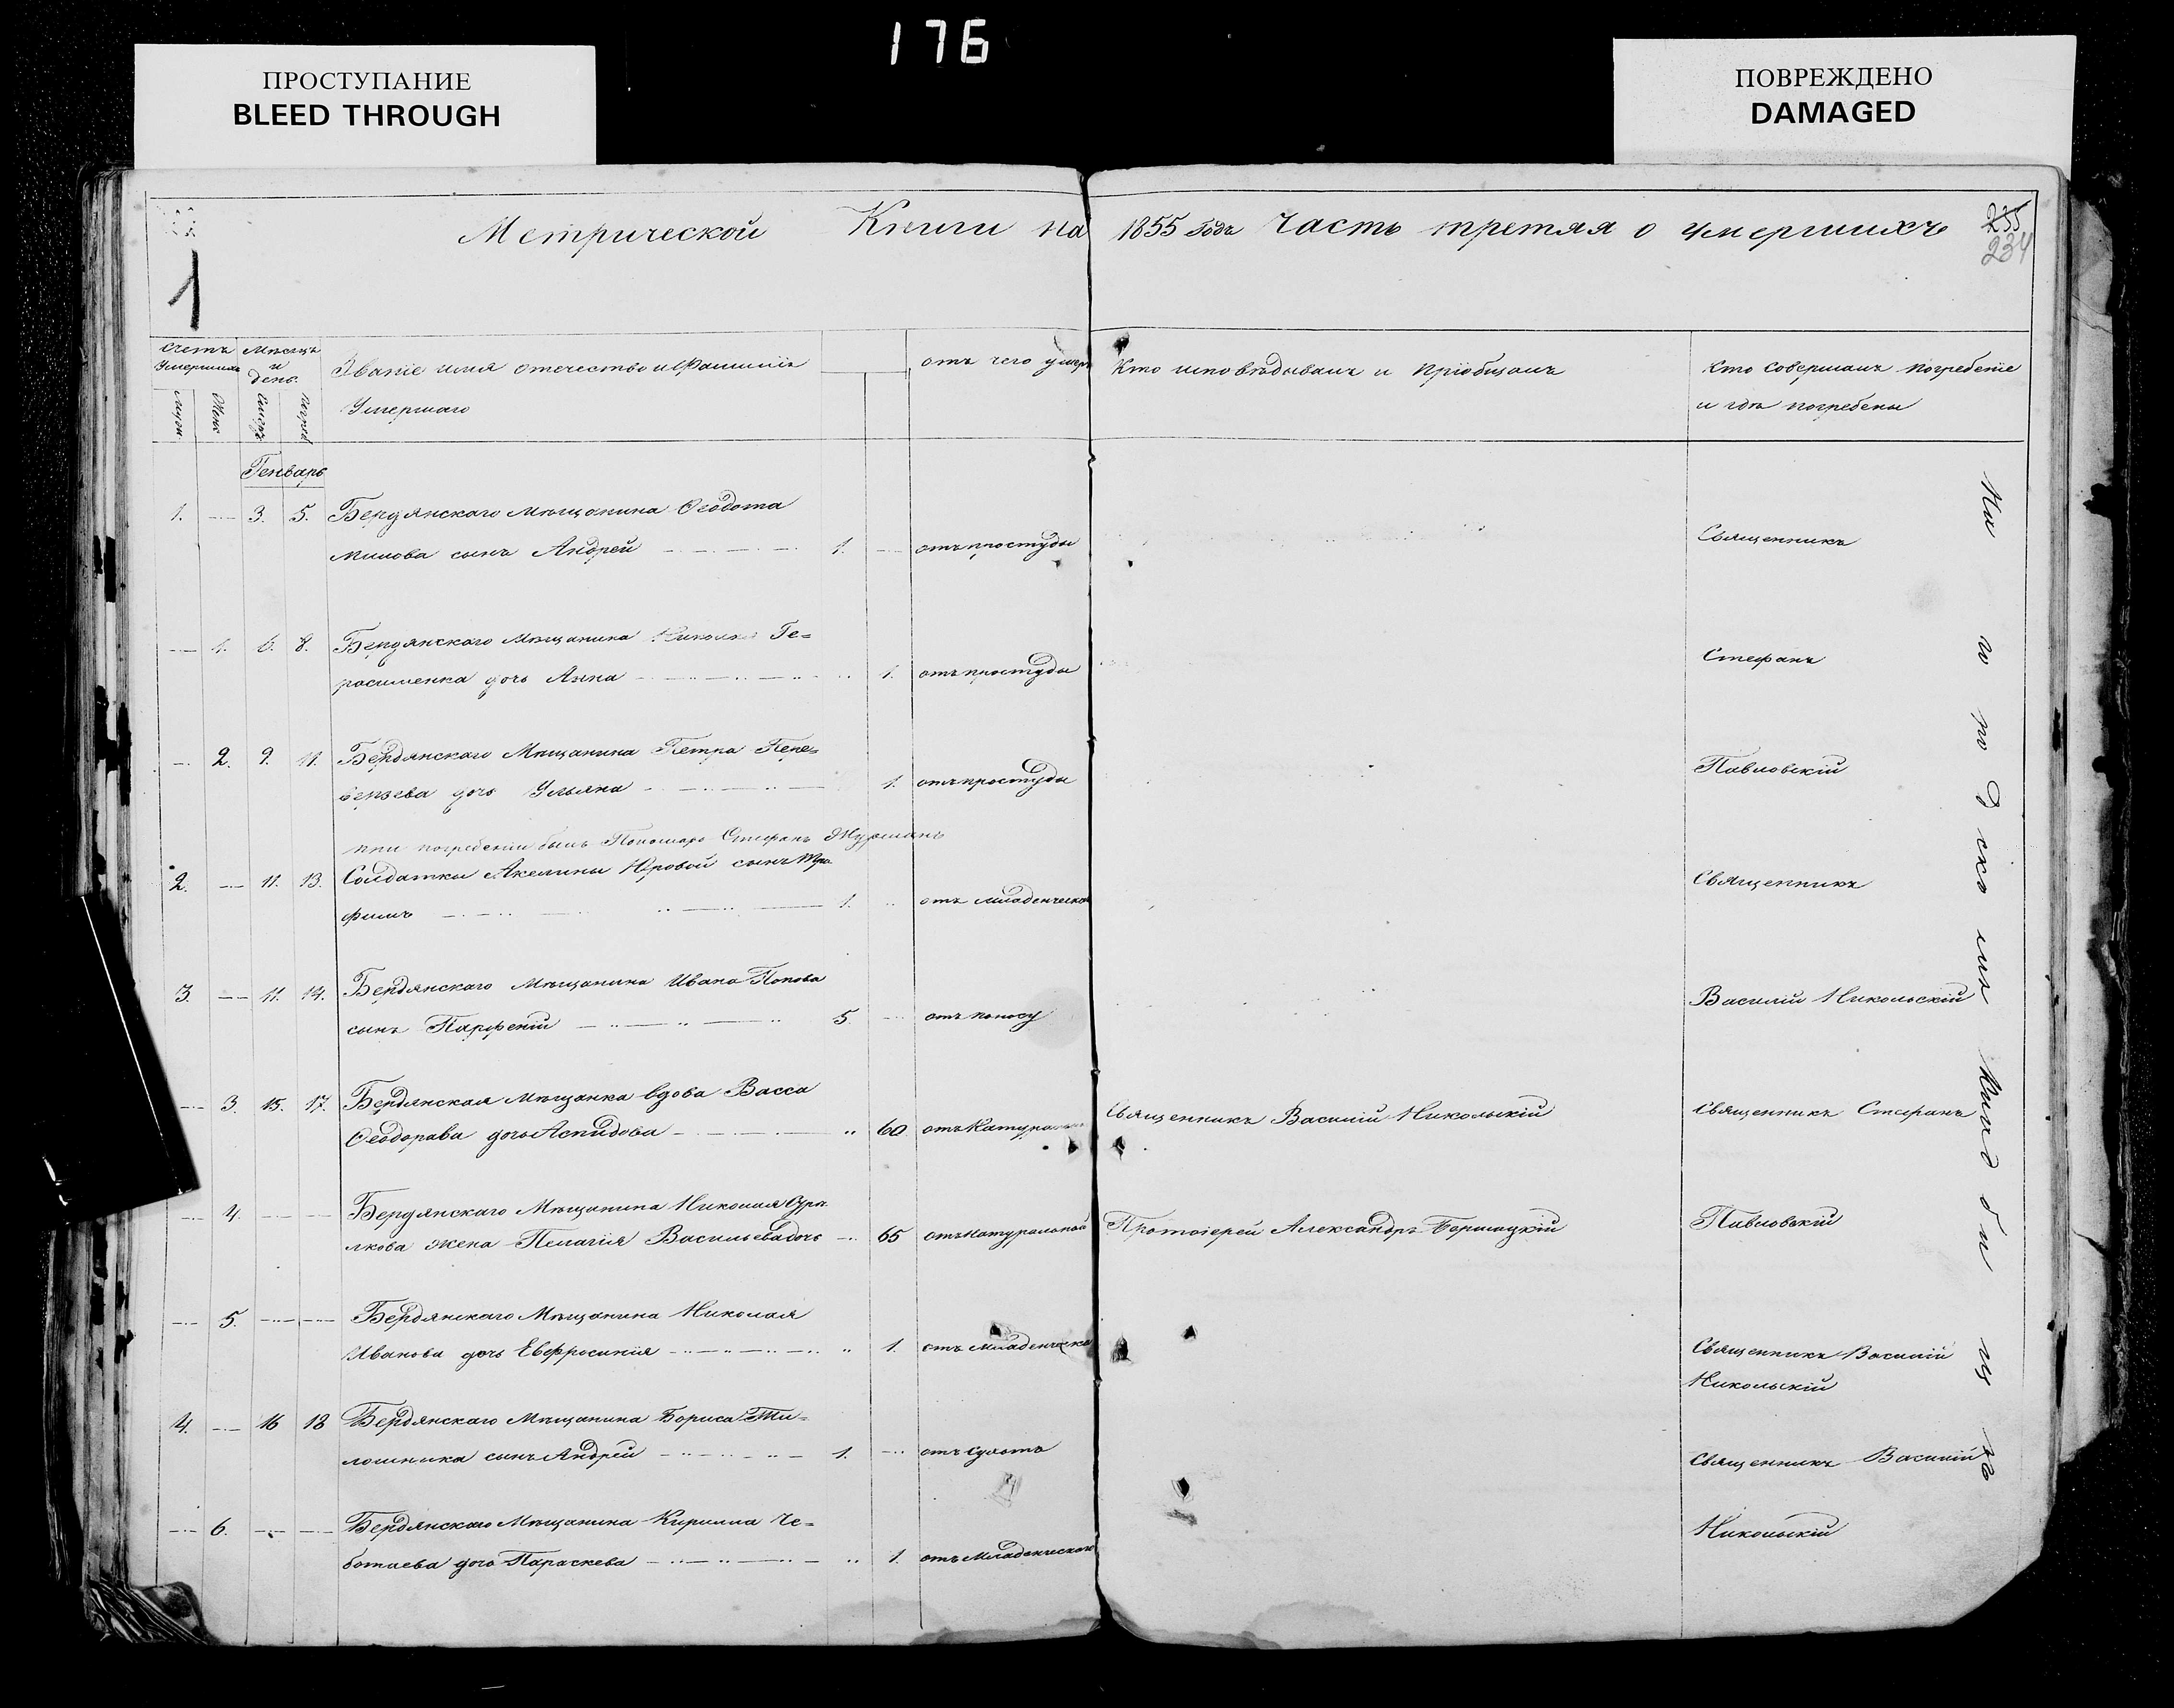 176
ПРОСТУПАНИЕ
BLEED THROUGH
ПОВРЕЖДЕНО
DAMAGED
Метрической Книги на 1855 годъ Часть третяя о умершихъ
235
234
1
Счетъ Умершихъ
Мѣсяцъ и день
Званіе имя отечество и Фамилія
Умершаго
отъ чего умеръ
Кто исповѣдывалъ и пріобщалъ
Кто совершалъ погребеніе
и гдѣ погребены
Генварь
1. 3. 5. Бердянскаго Мѣщанина Ѳеодота
Милова сынъ Андрей 1. отъ простуды
Священникъ
1. 6. 8. Бердянскаго Мѣщанина Николая Ге=
расименка дочь Анна 1. отъ простуды
Стефанъ
2. 9. 11. Бердянскаго Мѣщанина Петра Пере=
верзева дочь Ульяна 1. отъ простуды
Павловскій
при погребеніи былъ Пономарь Стефанъ
2. 11. 13. Солдатки Акелины сынъ Тро
фимъ 1. отъ младенческой
Священникъ
3. 11. 14. Бердянскаго Мѣщанина Ивана Попова
сынъ Парфеній 5 отъ поносу
Василій Никольскій
3. 15. 17. Бердянская Мѣщанка вдова Васса
Ѳеодорава дочь Аспидова 60 отъ Натуральной
Священникъ Василій Никольскій
Священникъ Стефанъ
4. Бердянскаго Мѣщанина Николая
жена Пелагія Васильева дочь 65 отъ Натуральной
Протоіерей Александръ
Павловскій
5. Бердянскаго Мѣщанина Николая
Иванова дочь Евфросинія 1. отъ младенческой
Священникъ Василій
Никольскій
4. 16 18 Бердянскаго Мѣщанина Бориса
сынъ Андрей 1.
Священникъ Василій
6. Бердянскаго Мѣщанина Кирилла Че=
ботаева дочь Параскева 1. отъ Младенческой
Никольскій